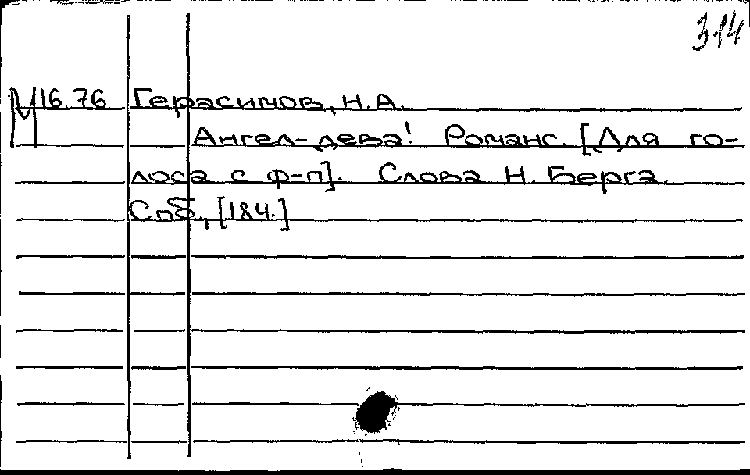 314
М 16.76 Герасимов, Н.А.
Ангел-дева! Романс. [Для го-
лоса с ф-п]. Слова Н. Берга.
Спб., [184.]